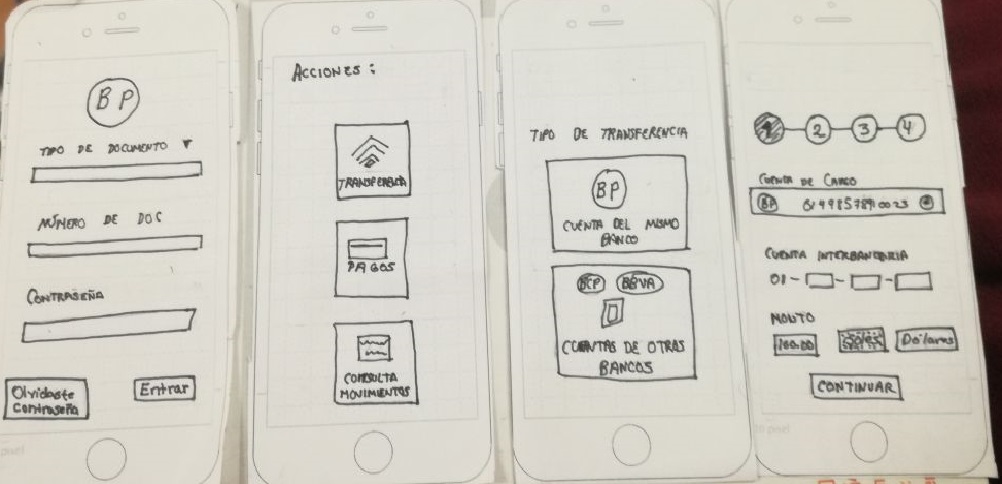 BP
TIPO DE DOCUMENTO
NÚMERO DE DOC
CONTRASEÑA
Olvidaste
Contraseña
Entrar
ACCIONES:
TRANSFERENCIA
PAGOS
CONSULTA
MOVIMIENTOS
TIPO DE TRANSFERENCIA
BP
CUENTA DEL MISMO
BANCO
BCP BBVA
CUENTAS DE OTRAS
BANCOS
1 2 3 4
CUENTA DE CARGO
BP
CUENTA INTERBANCARIA
01- - -
MONTO
100.00 Soles Dolares
CONTINUAR